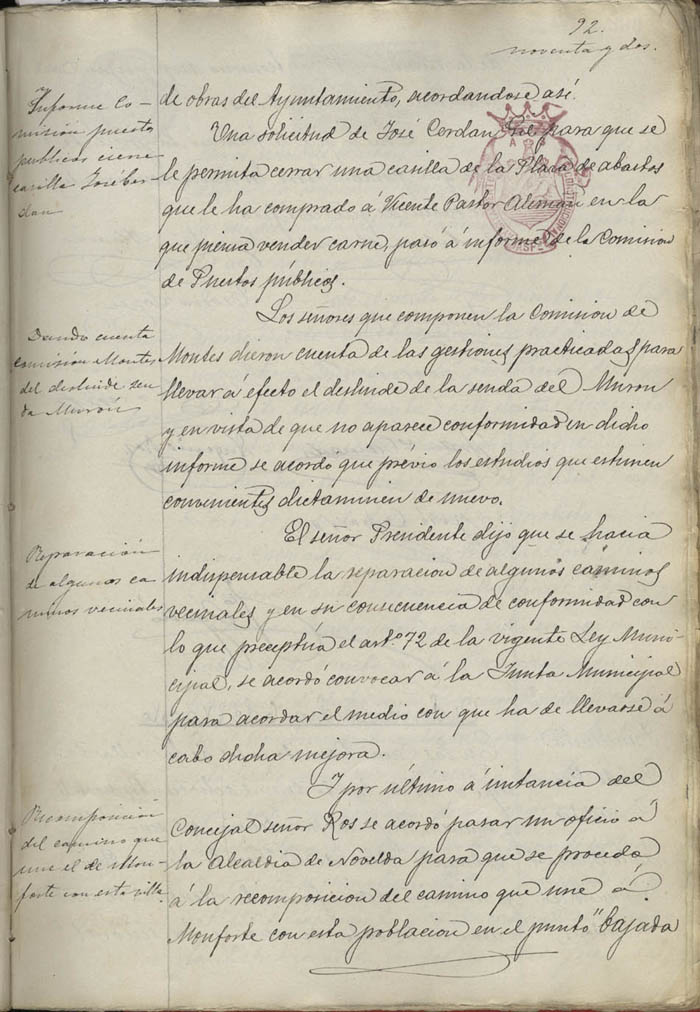 92.
noventa y dos.
Informe Co-
misión puestos
publicos cierre
casilla José Cer-
dan
de obras del Ayuntamiento, acordandose así.
Una solicitud de José Cerdan para que se
le permita cerrar una casilla de la Plaza de abastos
que le ha comprado á Vicente Pastor Alemañ en la
que piensa vender carne, pasó á informe de la Comision
de Puestos públicos.
Dando cuenta
comision Montes
del deslinde sen-
da Murón
Los señores que componen la Comision de
Montes dieron cuenta de las gestiones practicadas para
llevar á efecto el deslinde de la senda del Muron
y en vista de que no aparece conformidad en dicho
informe se acordó que prévio los estudios que estimen
convenientes dictaminen de nuevo.
Reparación
de algunos ca-
minos vecinales
El señor Presidente dijo que se hacia
indispensable la reparacion de algunos caminos
vecinales y en su consecuencia de conformidad con
lo que preceptúa el artº 72 de la vigente Ley Muni-
cipal, se acordó convocar á la Junta Municipal
para acordar el medio con que ha de llevarse á
cabo dicha mejora.
Recomposición
del camino que
une el de Mon-
forte con esta villa
Y por último á instancia del
Concejal señor Ros se acordó pasar un oficio á
la Alcaldia de Novelda para que se proceda
á la recomposicion del camino que une á
Monforte con esta poblacion en el punto "bajada